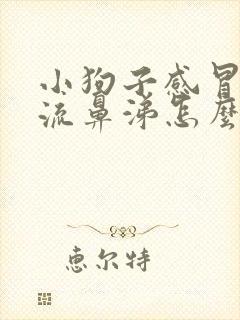 小狗子感冒
流鼻涕怎麼
惠尔特